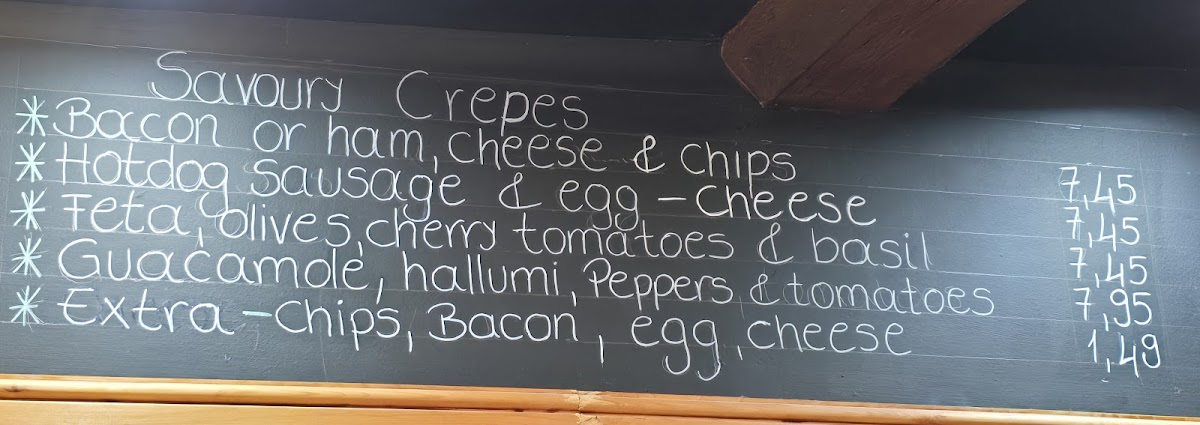 Savoury Crepes
* Bacon or ham, cheese & chips 7,45
* Hotdog sausage & egg - cheese 7,45
* Feta, olives, cherry tomatoes & basil 7,45
* Guacamole, hallumi, Peppers & tomatoes 7,95
* Extra - chips, Bacon, egg, cheese 1,49